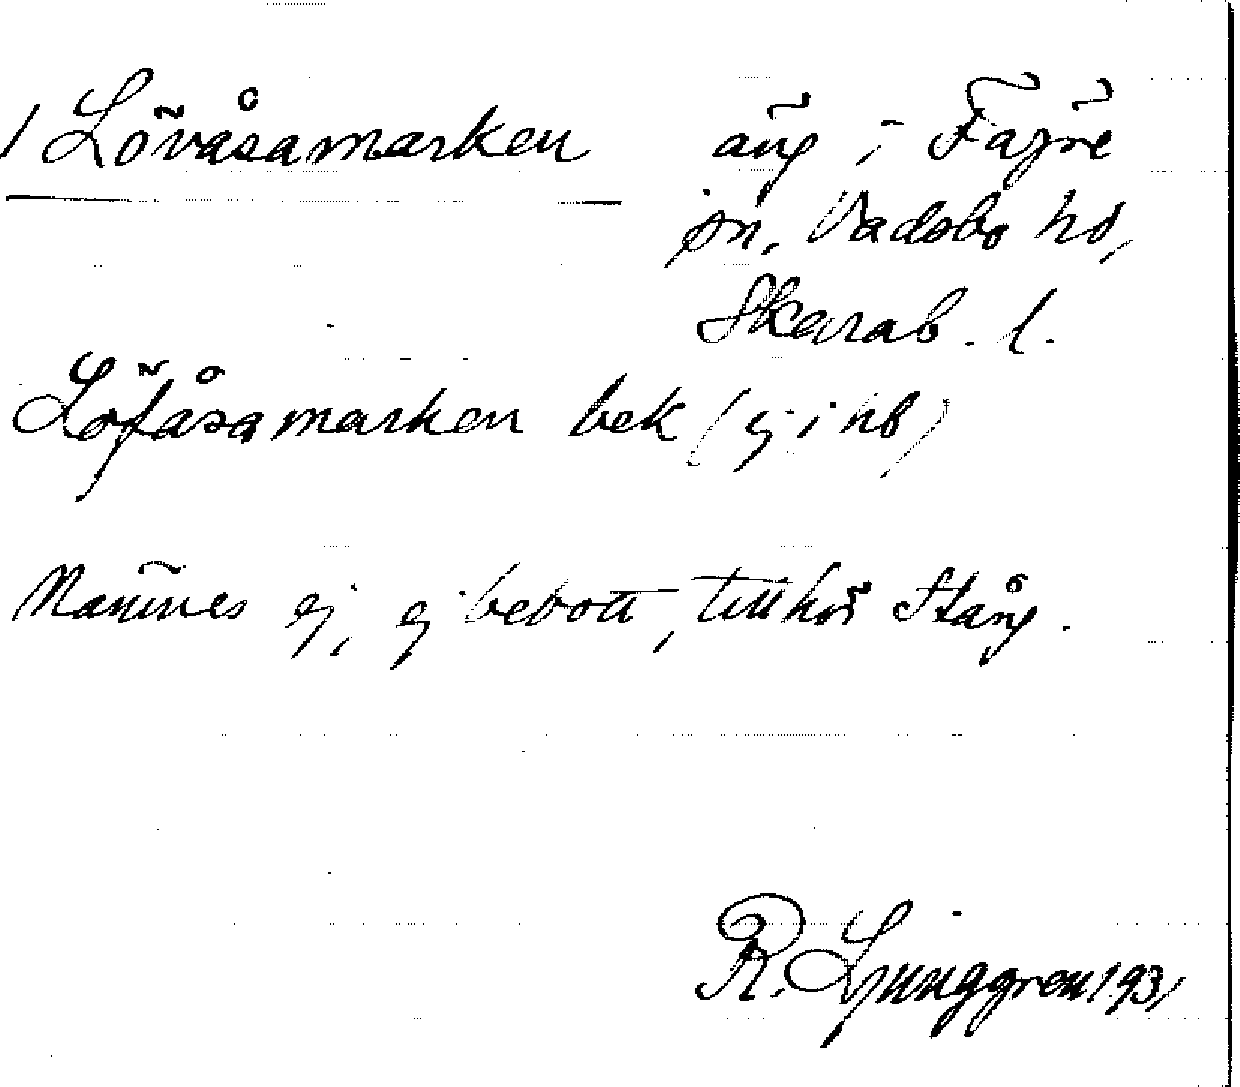 / Lövåsamarken äng i Fägre
sn, Vadsbo hd,
Skarab. l.
Löfåsamarken bek (ej i hb)
Nämnes ej, ej bebott, tillhör Stång.
R. Ljunggren 1931